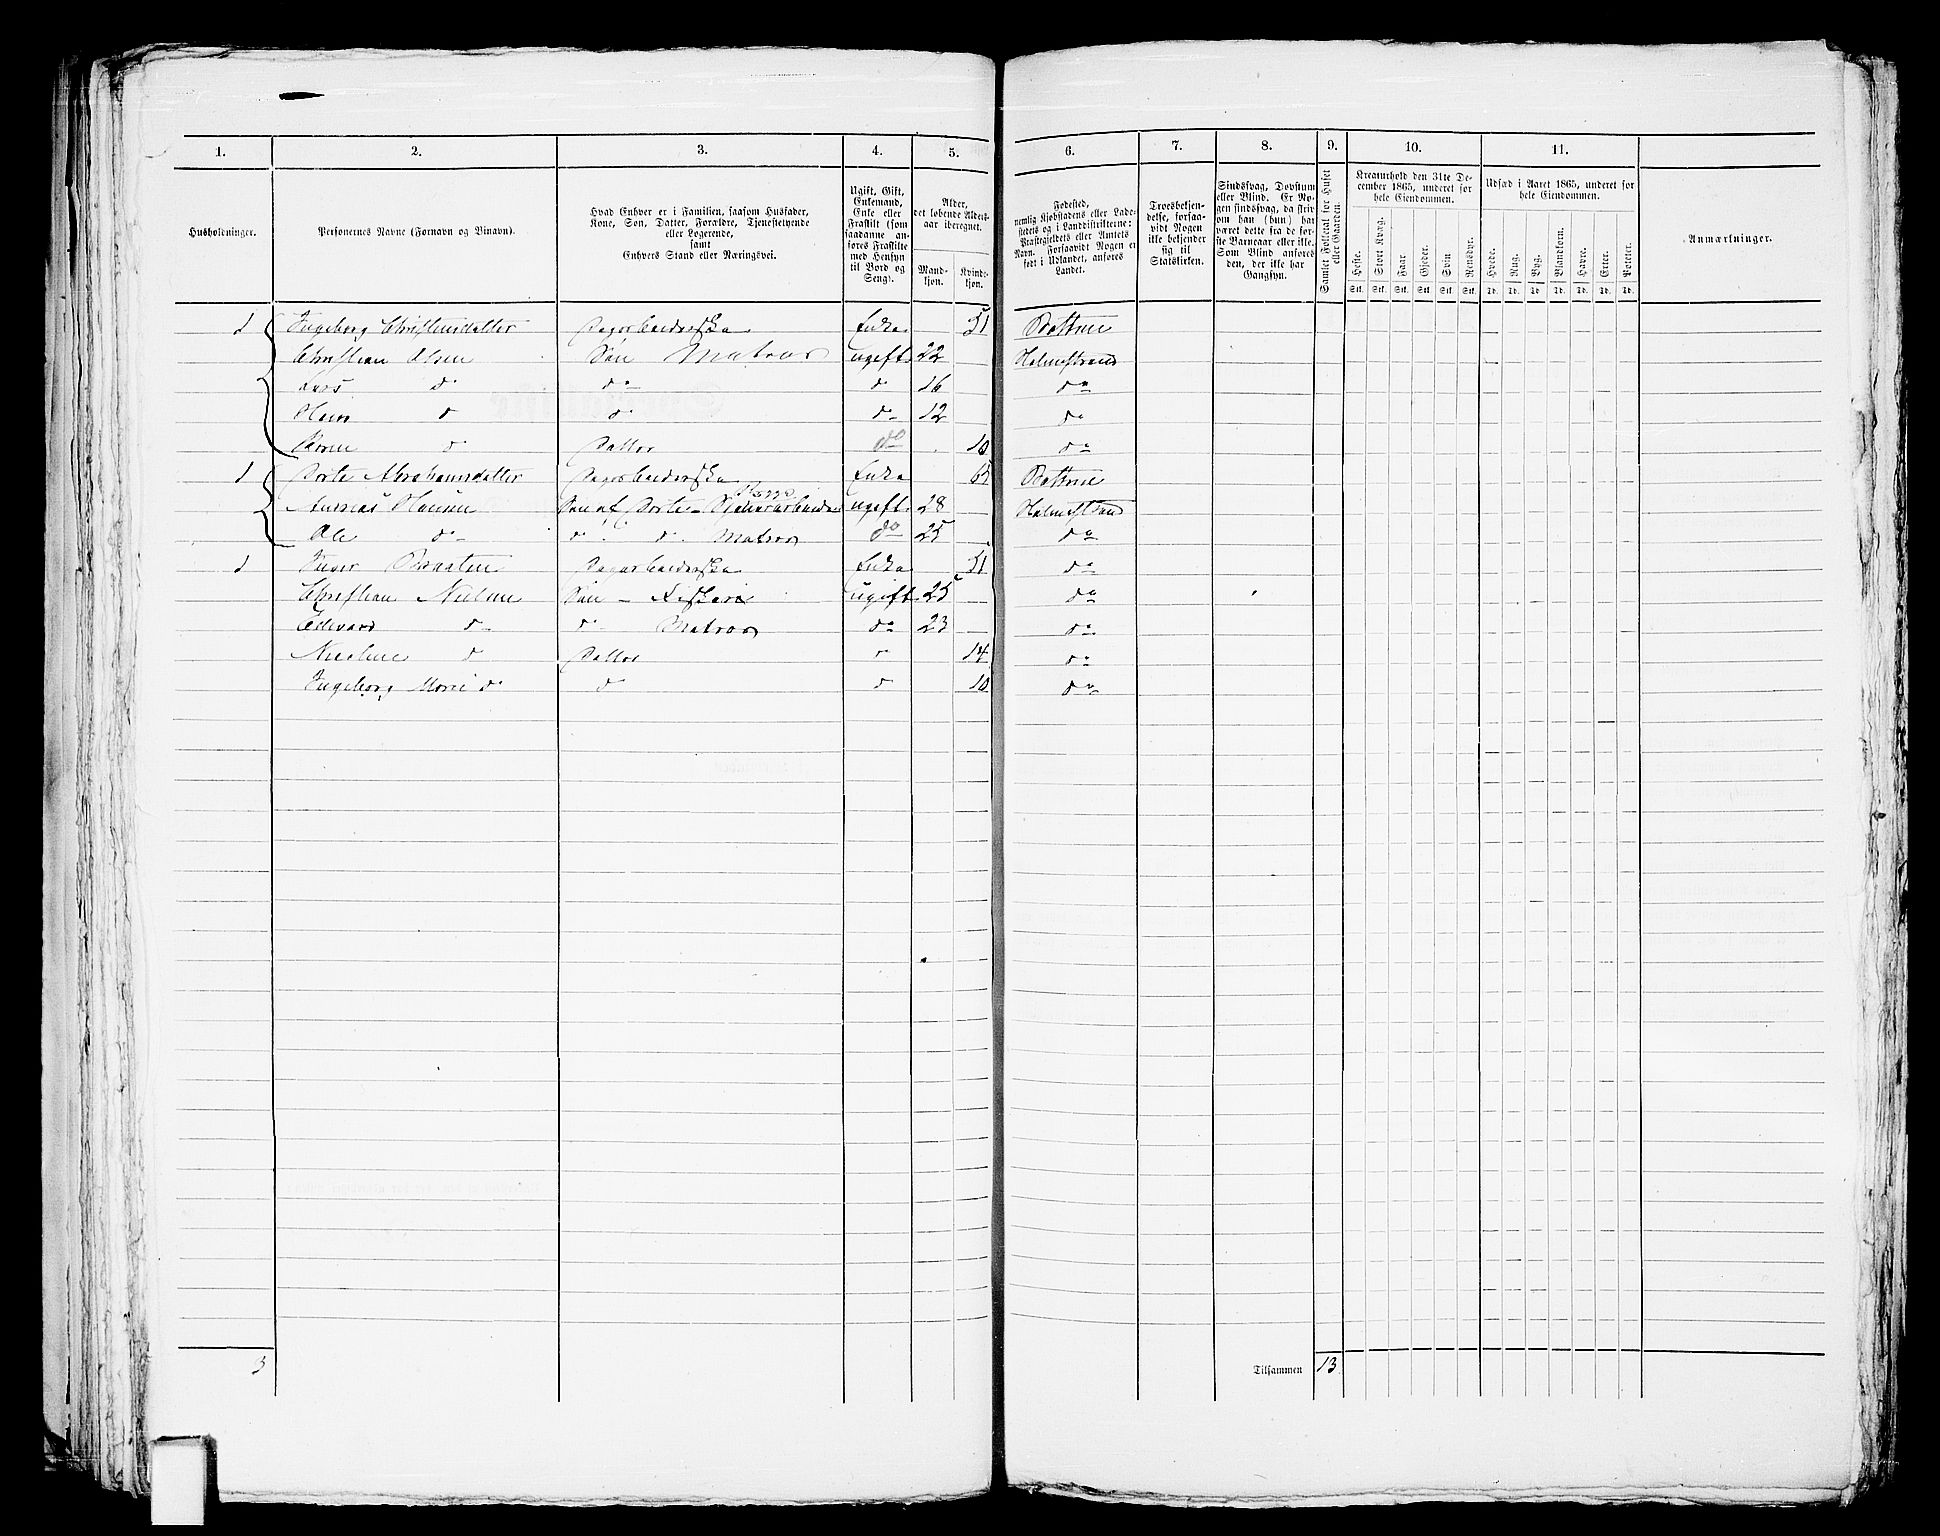 1. 2. 3. 4. 5. 6. 7. 8. 9. 10. 11.
Husholdninger.
Personernes Navne (Fornavn og Tilnavn).
Hvad Enhver er i Familien, saasom Husfader,
Kone, Søn, Datter, Forældre, Tjenestetyende
eller Logerende,
samt
Enhvers Stand eller Næringsvei.
Ugift, Gift,
Enkemand,
Enke eller
Fraskilt (som
saadanne an-
føres Fraskilte
med Hensyn
til Bord og
Seng).
Alder,
det løbende Alders-
aar iberegnet.
Mand-
kjøn.
Kvinde-
kjøn.
Fødested,
nemlig Kjøbstadens eller Lade-
stedets og i Landdistrikterne:
Præstegjeldets eller Amtets
Navn. Forsaavidt Nogen er
født i Udlandet, anføres
Landet.
Troesbekjen-
delse, forsaa-
vidt Nogen
ikke bekjender
sig til
Statskirken.
Sindssvag, Døvstum
eller Blind. Er No-
gen sindssvag, da skriv
om han (hun) har
været dette fra de før-
ste Barneaar eller ikke.
Som Blind anføres
den, der ikke har
Gangsyn.
Samlet Folketal for Huset
eller Gaarden.
Kreaturhold den 31te De-
cember 1865, underet for
hele Eiendommen.
Heste. Stort Kvæg. Faar Gjeder. Svin Rensdyr.
Stk. Stk. Stk. Stk. Stk. Stk.
Udsæd i Aaret 1865, underet for
hele Eiendommen.
Hvede. Rug. Byg. Blandkorn. Havre. Erter. Poteter.
Td. Td. Td. Td. Td. Td. Td.
Anmærkninger.
1 Ingeborg Christensdatter Dagarbeiderske Enke 51 Bottne
Christian Olsen Søn Matros ugift 22 Holmestrand
Lars do do do 16 do
Hans do do do 12 do
do Datter do 10 do
1 Dorte Abrahamsdatter Dagarbeiderske Enke 65 Bottne
Andreas Hansen Søn af Dorte - ugift 28 Holmestrand
Ole do do do Matros do 25 do
1 Dagarbeiderske Enke 51 do
Christian Nielsen Søn - ugift 25 do
Edevard do do Matros do 23 do
do Datter do 14 do
Ingeborg Marie do do do 10 do
3
Tilsammen 13